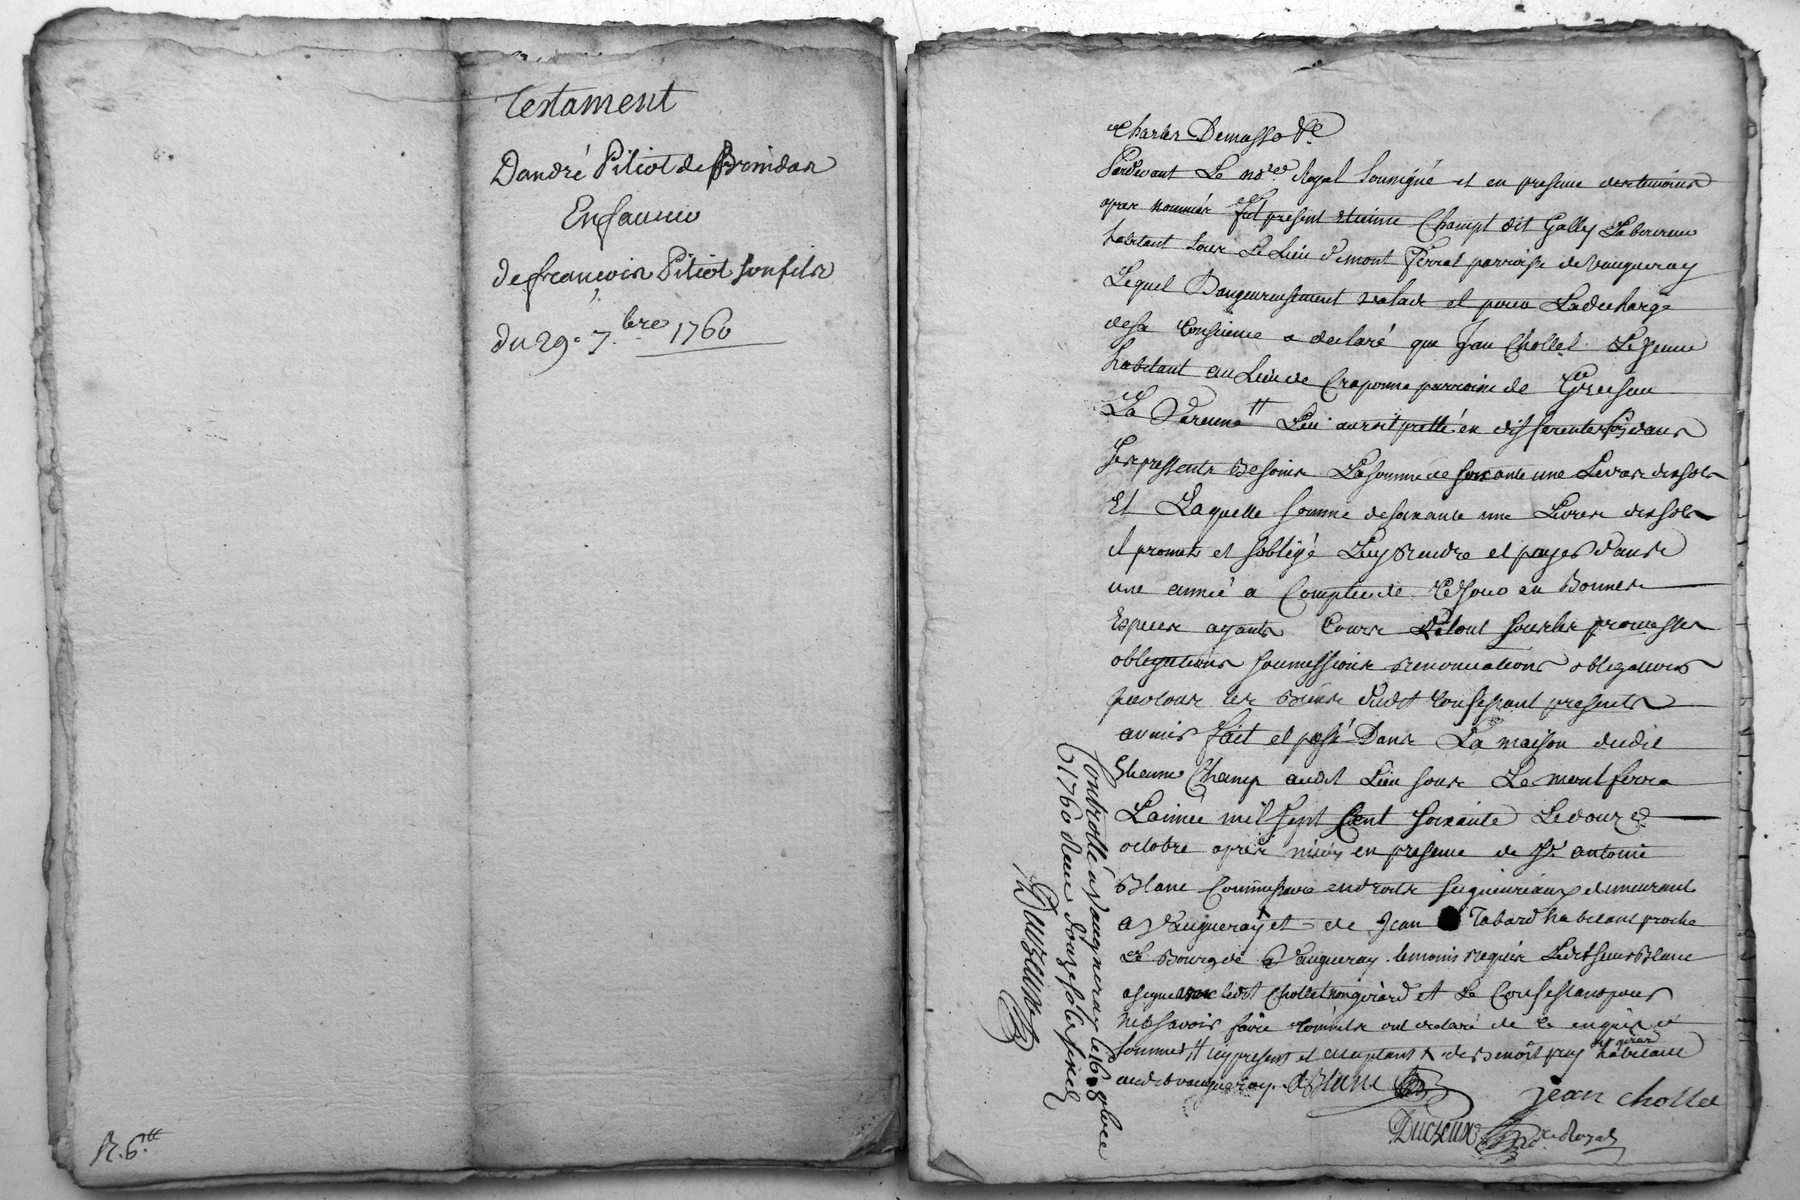 Testament
Dandré Pitiot de Brindas
En faveur
de françois Pitiot son fils
du 29e 7.bre 1760
R. 6.tt
Charles Demasso &c
Pardevant Le no.re Royal soussigné et en presence des temoins
apres nommés fut present etienne Champt dit Gally Laboureur
habitant sous Le Lieu de mont ferrat parroisse de Vaugneray
Lequel Dangereusement malade et pour La decharge
de sa Consience a declaré que Jean Chollet Le jeune
habitant au Lieu de Craponne parroisse de Gresieu
La Varenne tt Lui auroit pretté en differentes fois dans
ses pressents Besoins La somme de soixante une Livres dix sols
Et Laquelle somme de soixante une Livres dix sols
il promet et s'obligé Luy Rendre et payer dans
une année a Compter de Ce jour en Bonnes
Especes ayants Cours Le tout sous les promesses
obligations soumissions renonciations obligations
de tous ses Biens dudit Confessant presents
avenir fait et passé Dans La maison dudit
Etienne Champ audit Lieu sous Le mont ferra
L'année mil sept Cent soixante Le douze
octobre apres midy en presence de Sr. antoine
Blanc Commissaire en droits seigneuriaux demeurant
a Vaugneray et de Jean Tabard habitant proche
Le Bourg de Vaugneray temoins requis Ledit sieur Blanc
a signé avec ledit Chollet non girard et Le Confessant pour
ne savoir faire ont declaré de Ce enquis et
sommés tt icy present et acceptant x de Benoît puy girard habitant
audit vaugneray. ABlanc
jean chollet
Ducreux no.re Royal
Controllé a Vaugneray le 16 8bre
1760 Recu douze sols six d.